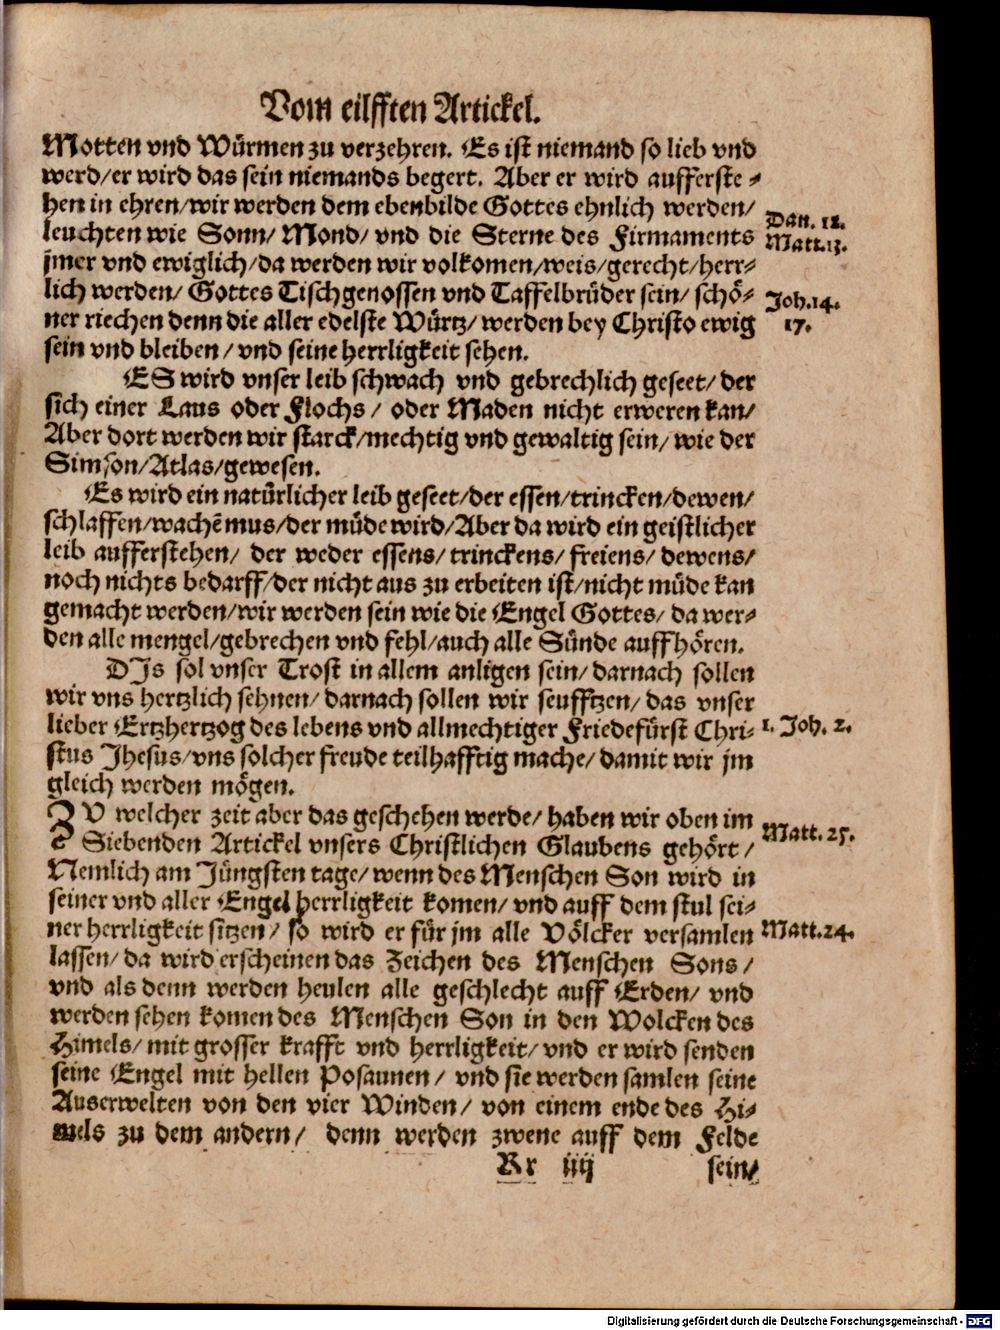 Vom eilfften Artickel.
Motten vnd Würmen zu verzehren. Es ist niemand so lieb vnd
werd/er wird das sein niemands begert. Aber er wird aufferste-
hen in ehren/wir werden dem ebenbilde Gottes ehnlich werden/
Dan. 12.
leuchten wie Sonn/ Mond/ vnd die Sterne des Firmaments
Matt.13.
jmer vnd ewiglich/da werden wir volkomen/weis/gerecht/herr-
lich werden/ Gottes Tischgenossen vnd Taffelbrüder sein/ schö-
Joh.14.
ner riechen denn die aller edelste Würtz/ werden bey Christo ewig
17.
sein vnd bleiben/ vnd seine herrligkeit sehen.
ES wird vnser leib schwach vnd gebrechlich geseet/ der
sich einer Laus oder Flochs/ oder Maden nicht erweren kan/
Aber dort werden wir starck/mechtig vnd gewaltig sein/ wie der
Simson/Atlas/gewesen.
Es wird ein natürlicher leib geseet/der essen/trincken/dewen/
schlaffen/wachē mus/der müde wird/Aber da wird ein geistlicher
leib aufferstehen/ der weder essens/trinckens/freiens/dewens/
noch nichts bedarff/der nicht aus zu erbeiten ist/nicht müde kan
gemacht werden/wir werden sein wie die Engel Gottes/ da wer-
den alle mengel/gebrechen vnd fehl/auch alle Sünde auffhören.
DJs sol vnser Trost in allem anligen sein/darnach sollen
wir vns hertzlich sehnen/ darnach sollen wir seufftzen/ das vnser
lieber Ertzhertzog des lebens vnd allmechtiger Friedefürst Chri-
1. Joh. 2.
stus Jhesus/vns solcher freude teilhafftig mache/ damit wir jm
gleich werden mögen.
ZV welcher zeit aber das geschehen werde/ haben wir oben im
Siebenden Artickel vnsers Christlichen Glaubens gehört/
Matt. 25.
Nemlich am Jüngsten tage/ wenn des Menschen Son wird in
seiner vnd aller Engel herrligkeit komen/ vnd auff dem stul sei-
ner herrligkeit sitzen/ so wird er für jm alle Völcker versamlen
Matt.24.
lassen/ da wird erscheinen das Zeichen des Menschen Sons/
vnd als denn werden heulen alle geschlecht auff Erden/ vnd
werden sehen komen des Menschen Son in den Wolcken des
Himels/ mit grosser krafft vnd herrligkeit/ vnd er wird senden
seine Engel mit hellen Posaunen/ vnd sie werden samlen seine
Auserwelten von den vier Winden/ von einem ende des Hi-
mels zu dem andern/ denn werden zwene auff dem Felde
Rr iiij sein/
Digitalisierung gefördert durch die Deutsche Forschungsgemeinschaft - DFG